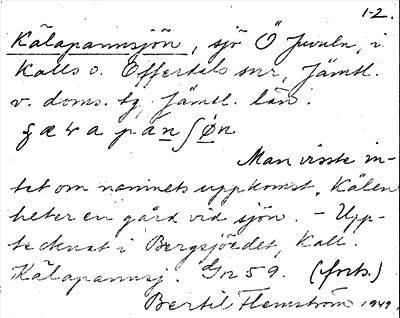 1-2.
Kälapannsjön, sjö Ö Juvuln, i
Kalls o. Offerdals snr, Jämtl.
v. doms. tg, Jämtl. län.
Man visste in-
tet om namnets uppkomst. Kälen
heter en gård vid sjön. – Upp-
tecknat i Bergsjöedet, Kall.
Kälapannsj. Gn 59. (forts.)
Bertil Flemström 1949.